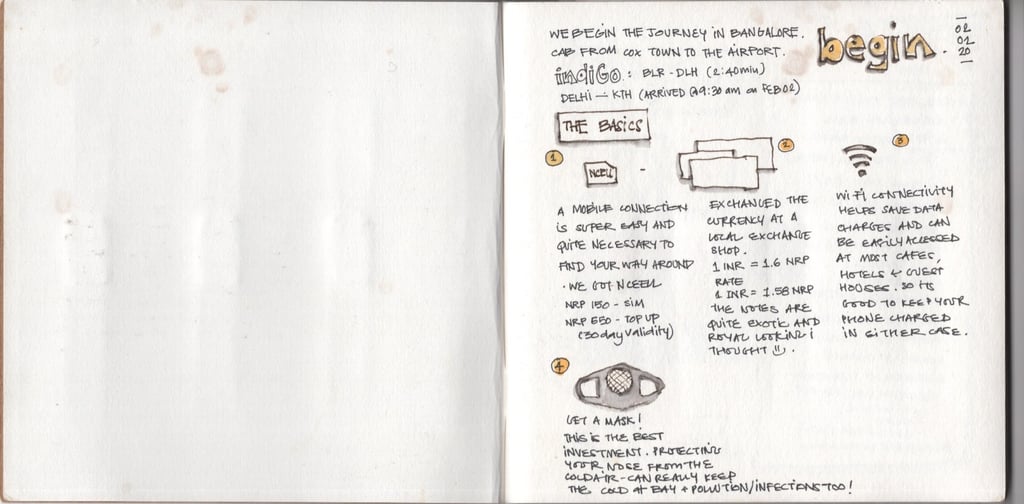 WE BEGIN THE JOURNEY IN BANGALORE.
CAB FROM COX TOWN TO THE AIRPORT.
indiGo : BLR - DLH (2:40min)
DELHI — KTH (ARRIVED @9:30 am on FEB 02)
begin.
02
02
20
THE BASICS
1
NCELL
A MOBILE CONNECTION
IS SUPER EASY AND
QUITE NECESSARY TO
FIND YOUR WAY AROUND
· WE GOT NCELL
NRP 150 - SIM
NRP 650 - TOP UP
(30 day validity)
2
EXCHANGED THE
CURRENCY AT A
LOCAL EXCHANGE
SHOP.
1 INR = 1.6 NRP
RATE
1 INR = 1.58 NRP
THE NOTES ARE
QUITE EXOTIC AND
ROYAL LOOKING I
THOUGHT ☺.
3
WIFI CONNECTIVITY
HELPS SAVE DATA
CHARGES AND CAN
BE EASILY ACCESSED
AT MOST CAFES,
HOTELS + GUEST
HOUSES. SO ITS
GOOD TO KEEP YOUR
PHONE CHARGED
IN EITHER CASE.
4
GET A MASK!
THIS IS THE BEST
INVESTMENT. PROTECTING
YOUR NOSE FROM THE
COLD AIR - CAN REALLY KEEP
THE COLD AT BAY + POLLUTION/INFECTIONS TOO!